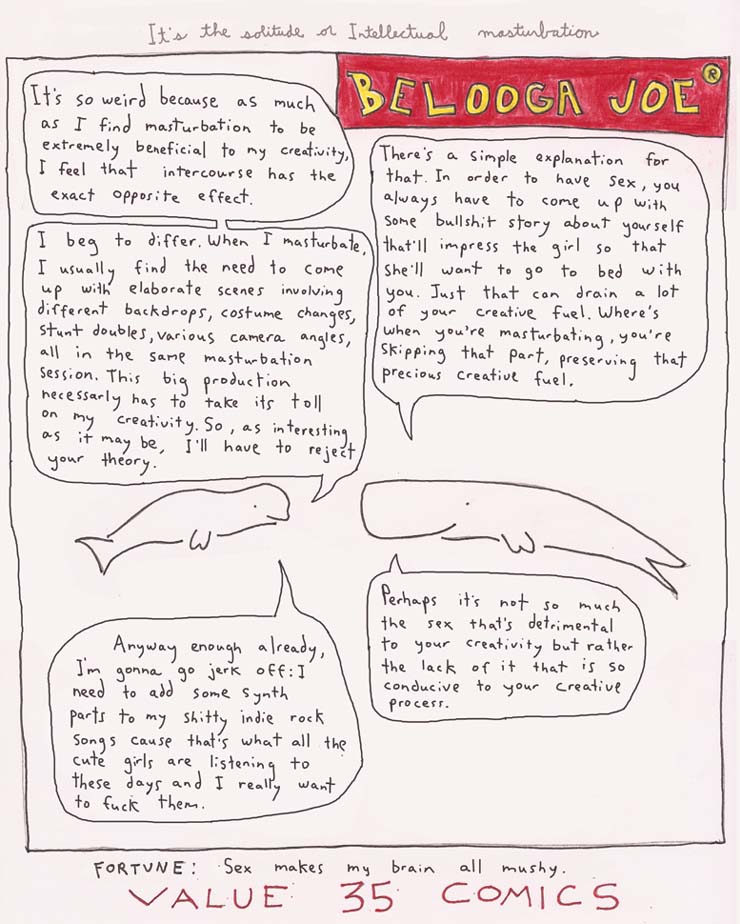 It's the solitude or Intellectual masturbation
BELOOGA JOE®
It's so weird because as much
as I find masturbation to be
extremely beneficial to my creativity,
I feel that intercourse has the
exact opposite effect.
There's a simple explanation for
that. In order to have sex, you
always have to come up with
some bullshit story about yourself
that'll impress the girl so that
she'll want to go to bed with
you. Just that can drain a lot
of your creative fuel. Where's
when you're masturbating, you're
skipping that part, preserving that
precious creative fuel.
I beg to differ. When I masturbate,
I usually find the need to come
up with elaborate scenes involving
different backdrops, costume changes,
stunt doubles, various camera angles,
all in the same masturbation
session. This big production
necessarly has to take its toll
on my creativity. So, as interesting
as it may be, I'll have to reject
your theory.
Perhaps it's not so much
the sex that's detrimental
to your creativity but rather
the lack of it that is so
conducive to your creative
process.
Anyway enough already,
I'm gonna go jerk off: I
need to add some synth
parts to my shitty indie rock
songs cause that's what all the
cute girls are listening to
these days and I really want
to fuck them.
FORTUNE: Sex makes my brain all mushy.
VALUE 35 COMICS